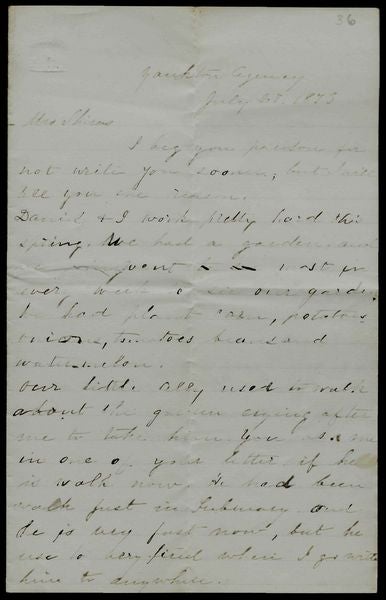 36
Yankton Agency
July 28. 1875
Mrs Shires
I beg you pardon for
not write you sooner, but I will
tell you one reason.
Daniel & I work pretty hard this
spring. We had a garden, and
we went most
every week to see our garden
he had plant corn, potatoes
onions, tomatoes beans and
watermelon.
Our little Ally used to walk
about the garden crying after
me to take him. You ask me
in one of your letter if he
is walk now. He had been
walk just in Febuary and
he is very fast now, but he
use to be tired when I go with
him to anywhere.